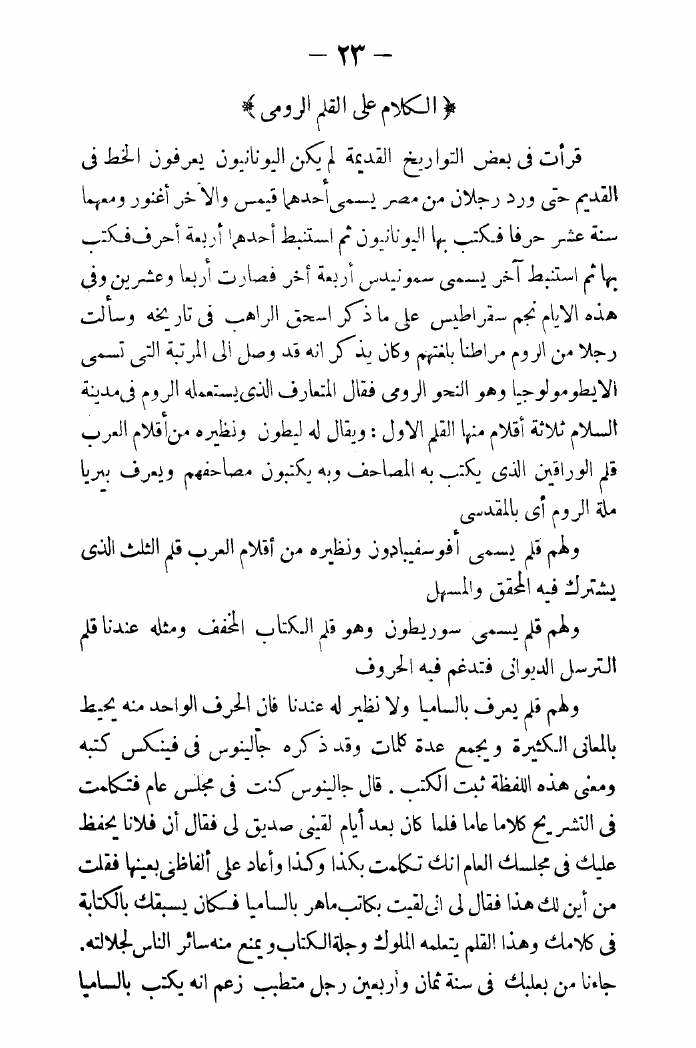 — ٢٣ —
﴿ الكلام على القلم الرومى ﴾
قرأت فى بعض التواريخ القديمة لم يكن اليونانيون يعرفون الخط فى
القديم حتى ورد رجلان من مصر يسمى أحدهما قيمس والآخر أغنور ومعهما
ستة عشر حرفا فكتب بها اليونانيون ثم استنبط أحدهما أربعة أحرف فكتب
بها ثم استنبط آخر يسمى سمونيدس أربعة أخر فصارت أربعا وعشرين وفى
هذه الايام نجم سقراطيس على ما ذكر اسحق الراهب فى تاريخه وسألت
رجلا من الروم مراطنا بلغتهم وكان يذكر انه قد وصل الى المرتبة التى تسمى
الايطومولوجيا وهو النحو الرومى فقال المتعارف الذى يستعمله الروم فى مدينة
السلام ثلاثة أقلام منها القلم الاول : ويقال له ليطون ونظيره من أقلام العرب
قلم الوراقين الذى يكتب به المصاحف وبه يكتبون مصاحفهم ويعرف بيريا
ملة الروم أى بالمقدسى
ولهم قلم يسمى أفوسفيبادون ونظيره من أقلام العرب قلم الثلث الذى
يشترك فيه المحقق والمسهل
ولهم قلم يسمى سوريطون وهو قلم الكتاب المخفف ومثله عندنا قلم
الترسل الديوانى فتدغم فيه الحروف
ولهم قلم يعرف بالساميا ولا نظير له عندنا فان الحرف الواحد منه يحيط
بالمعانى الكثيرة ويجمع عدة كلمات وقد ذكره جالينوس فى فينكس كتبه
ومعنى هذه اللفظة ثبت الكتب . قال جالينوس كنت فى مجلس عام فتكلمت
فى التشريح كلاما عاما فلما كان بعد أيام لقينى صديق لى فقال أن فلانا يحفظ
عليك فى مجلسك العام انك تكلمت بكذا وكذا وأعاد على ألفاظى بعينها فقلت
من أين لك هذا فقال لى انى لقيت بكاتب ماهر بالساميا فكان يسبقك بالكتابة
فى كلامك وهذا القلم يتعلمه الملوك وجلة الكتاب ويمنع منه سائر الناس لجلالته.
جاءنا من بعلبك فى سنة ثمان وأربعين رجل متطبب زعم انه يكتب بالساميا